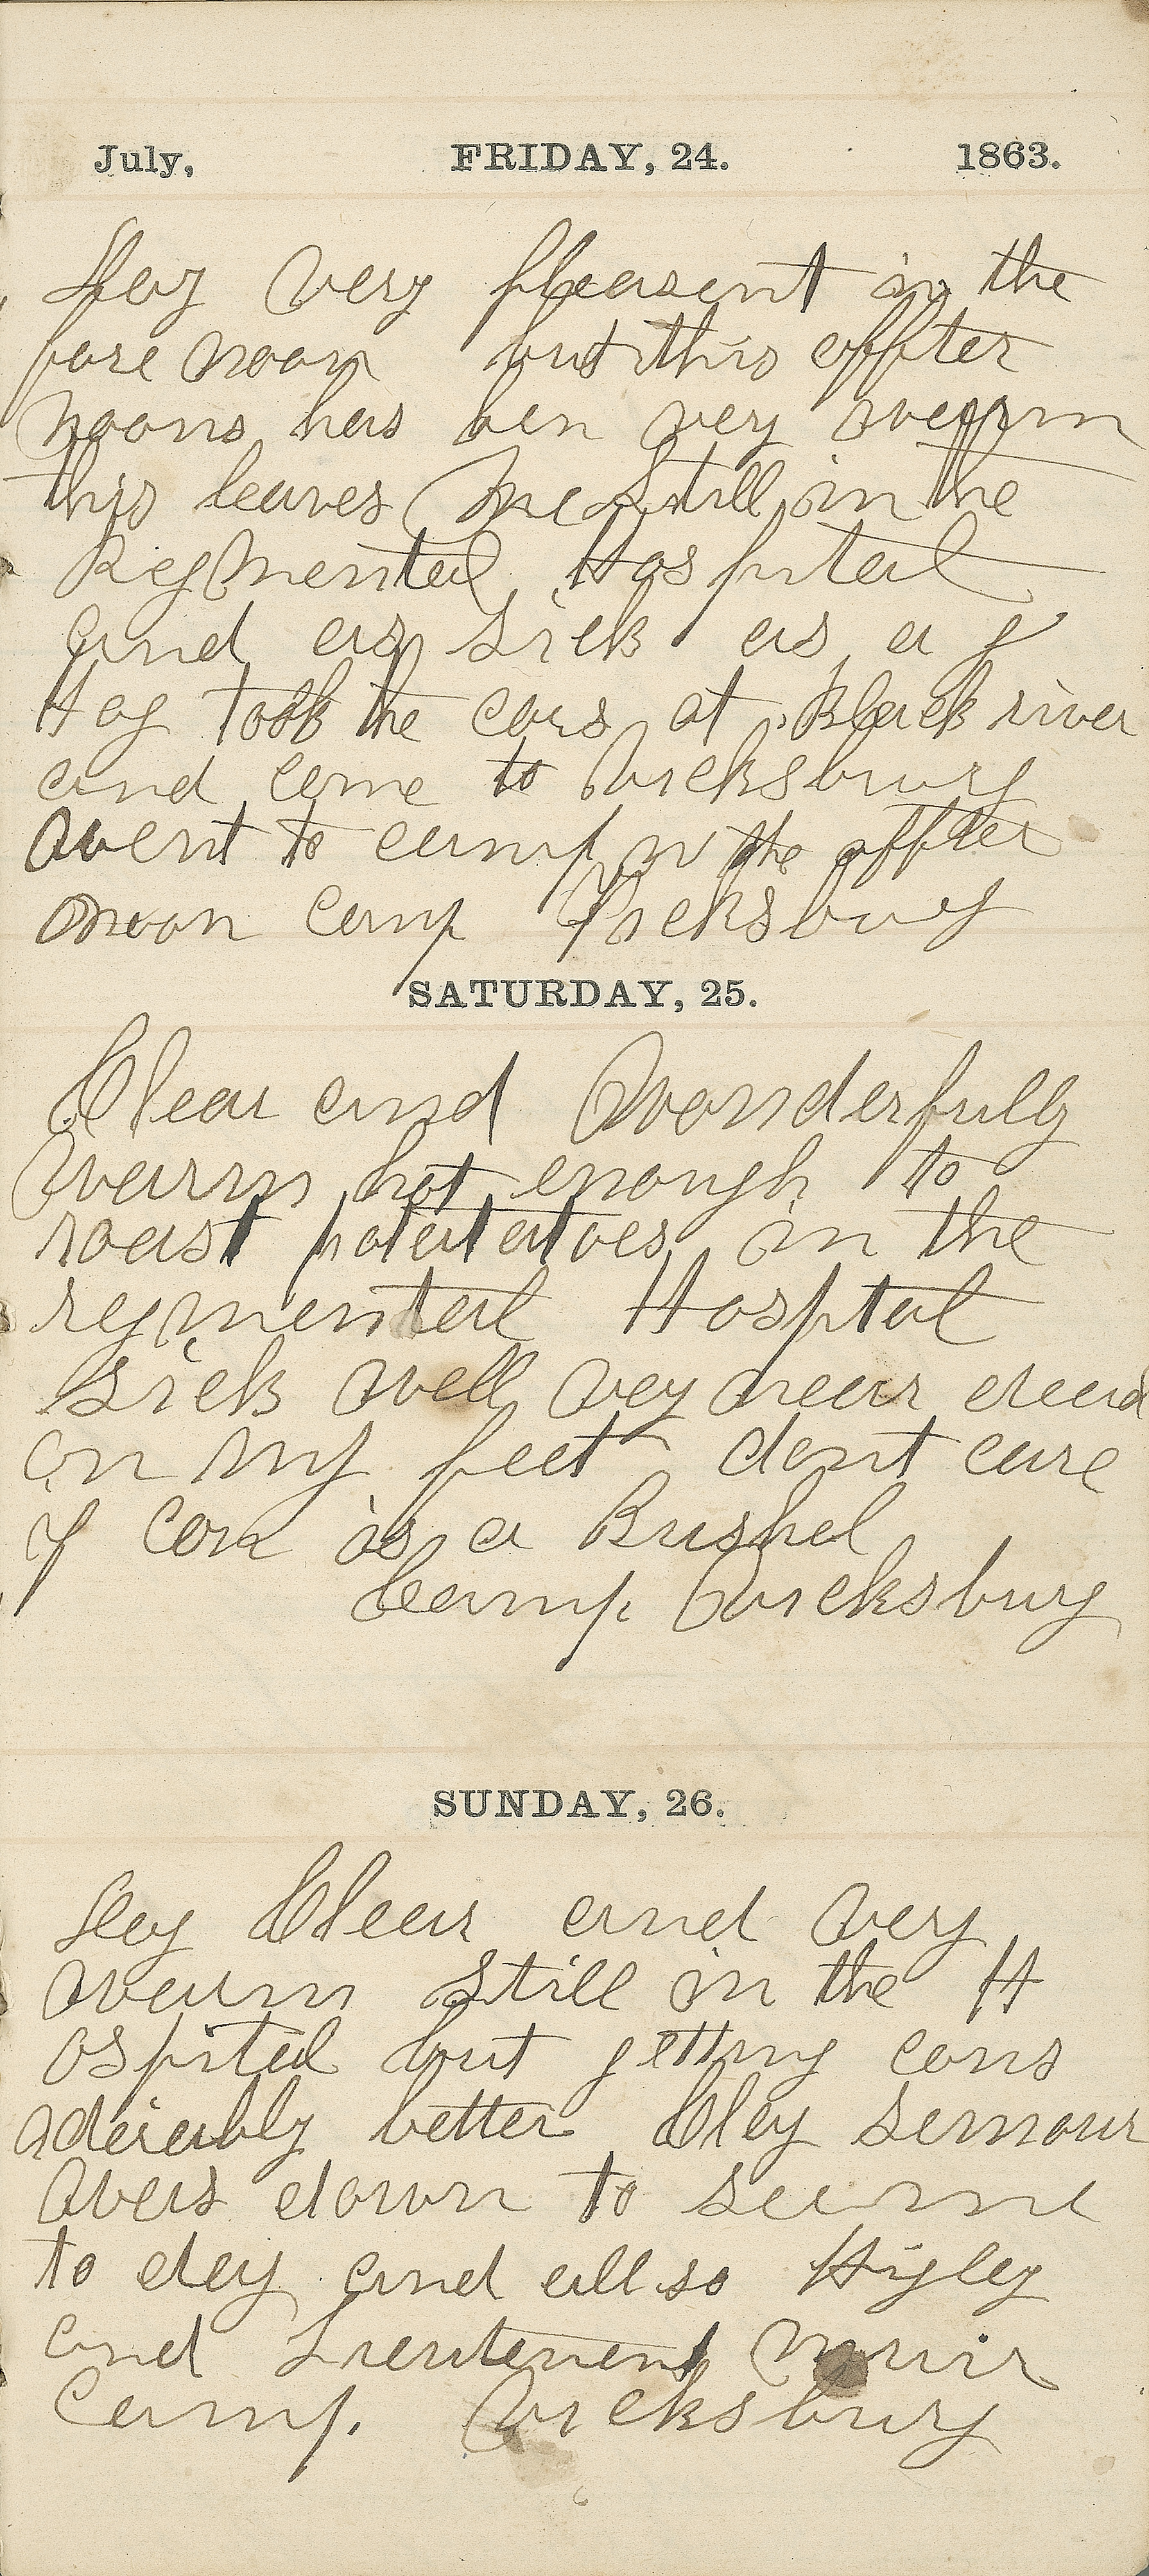 July, FRIDAY, 24. 1863.
Day very pleasent in the
fore noon but this affter
noons has ben very warm
this leaves me still in the
Regmental Hospital
and as sick as a
Hog took the cars at Black river
and come to Vicksburg
went to camp in the affter
noon Camp Vicksburg
SATURDAY, 25.
Clear and Wonderfully
warm hot enough to
roast potatatoes in the
regmental Hosptal
sick well vey near dead
on my feet dont care
if Corn is a Bushel
Camp Vicksburg
SUNDAY, 26.
Day Clear and very
warm still in the H
ospital but getting cons
aderably better Clay Semour
was down to see me
to day and allso Higley
and Lieutenent Muir
Camp. Vicksburg